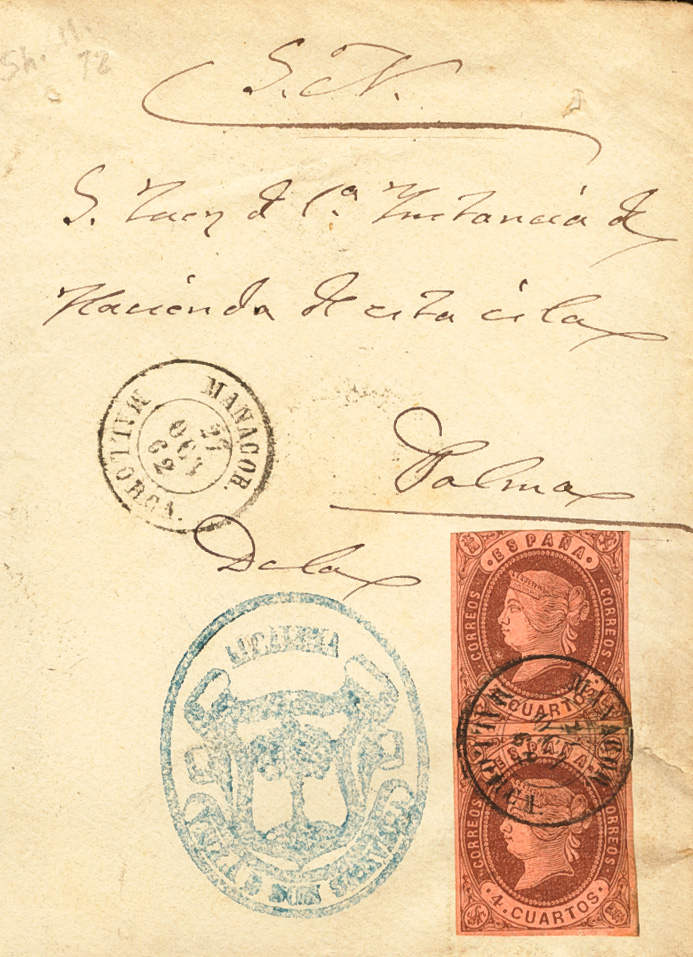 Sh. 11.
72
S. N.
S. Juez de 1.ª Instancia de
Hacienda de esta isla
MANACOR.
27
OCT
62
MALLORCA.
Palma
De la
ALCALDIA
ESPAÑA
CORREOS
CORREOS
CUARTOS
MANACOR
MALLORCA
ESPAÑA
CORREOS
CORREOS
4 CUARTOS